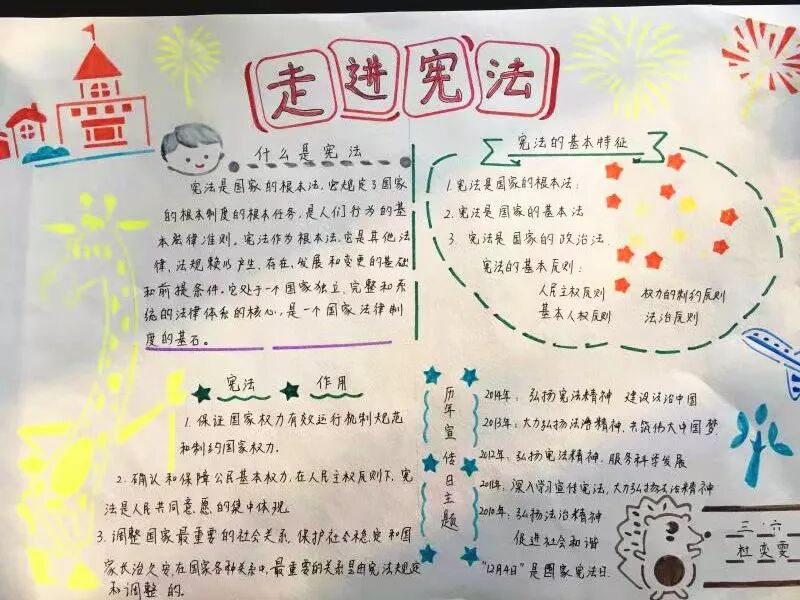 走进宪法
什么是宪法
宪法是国家的根本法，它规定了国家
的根本制度的根本任务，是人们行为的基
本法律准则。宪法作为根本法，它是其他法
律、法规赖以产生、存在、发展和变更的基础
和前提条件。它处于一个国家独立、完整和系
统的法律体系的核心，是一个国家法律制
度的基石。
宪法的基本特征
1.宪法是国家的根本法：
2.宪法是国家的基本法
3.宪法是国家的政治法.
宪法的基本原则：
人民主权原则 权力的制约原则
基本人权原则 法治原则
宪法 作用
1.保证国家权力有效运行机制规范
和制约国家权力.
2.确认和保障公民基本权力，在人民主权原则下，宪
法是人民共同意愿的集中体现.
3.调整国家最重要的社会关系，保护社会稳定和国
家长治久安，在国家各种关系中，最重要的关系是由宪法规定
和调整的.
历年宣传日主题
2014年：弘扬宪法精神 建设法治中国
2013年：大力弘扬法 精神，共筑伟大中国梦
2012年：弘扬宪法精神，服务科学发展
深入学习宣传宪法，大力弘扬法治精神
2010年：弘扬法治精神
促进社会和谐
"12月4日"是国家宪法日.
三·六
杜奕雯